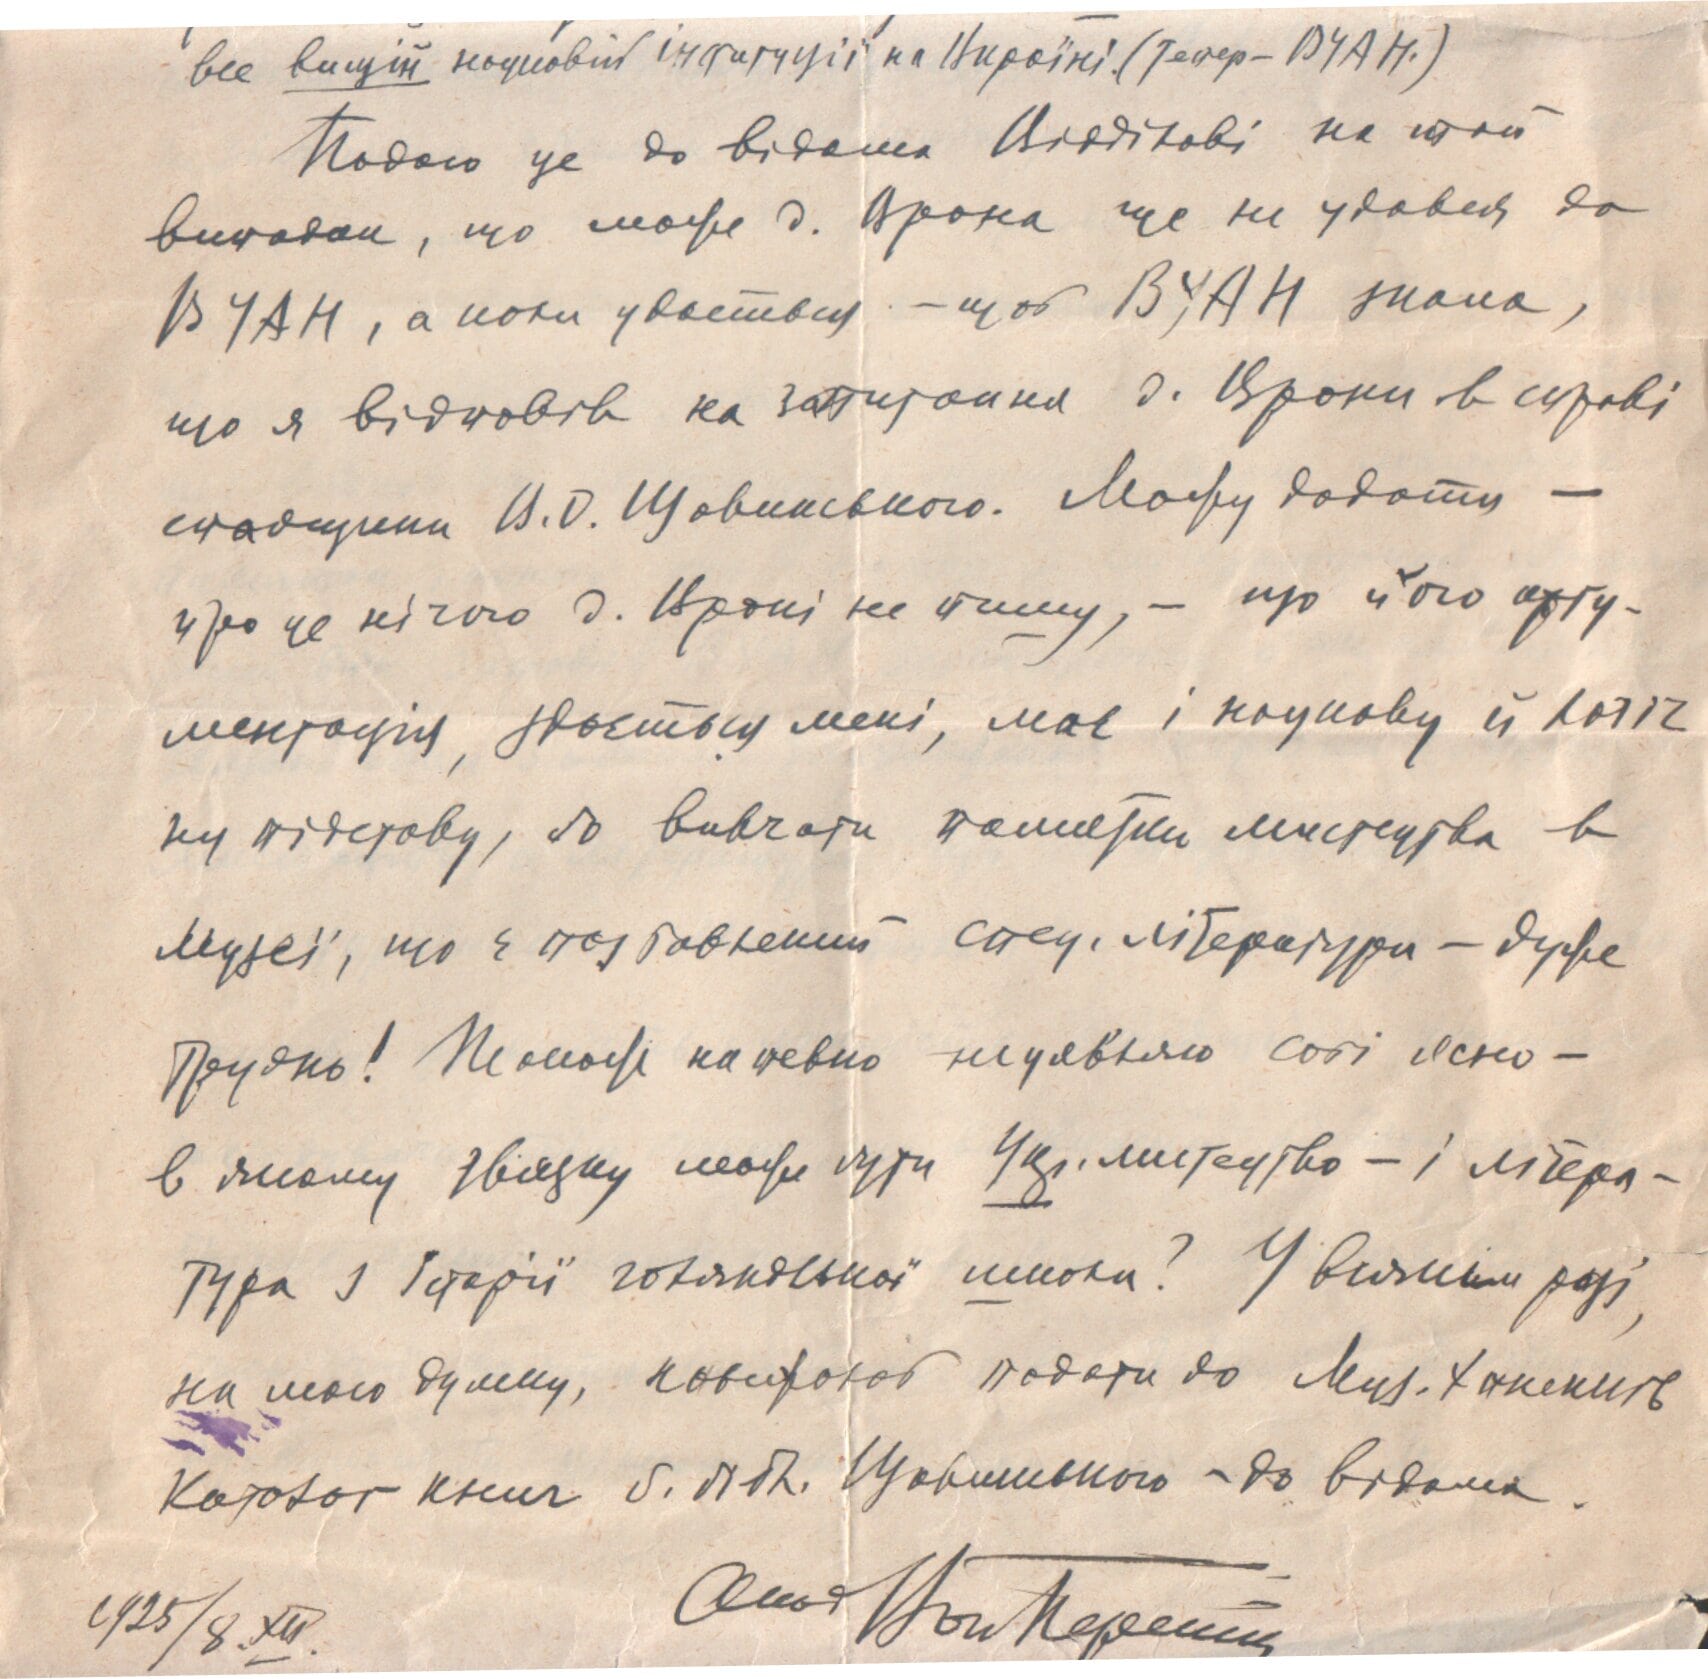 все вищій науковій інституції на Вкраїні. (Тепер – ВУАН.)
Подаю це до відома Відділові на той
випадок, що може д. Врона ще не удався до
ВУАН, а коли удасться – щоб ВУАН знала,
що я відповів на запитання д. Врони в справі
спадщини В.О. Щавинського. Можу додати –
про це нічого д. Вроні не пишу, – що його аргу-
ментація, здається мені, має і наукову й логіч
ну підставу, бо вивчати памятки мистецтва в
Музеї, що є позбавлений спец. літератури – дуже
трудно! Не може напевно не уявляю собі ясно –
в якому звязку може бути Укр. мистецтво – і літера-
тура з історії голяндської школи? У всякім разі,
на мою думку, належало б подати до Муз. Ханенків
каталог книг б. бібл. Щавинського – до відома.
Акад Вол Перетц
1925/8.XII.